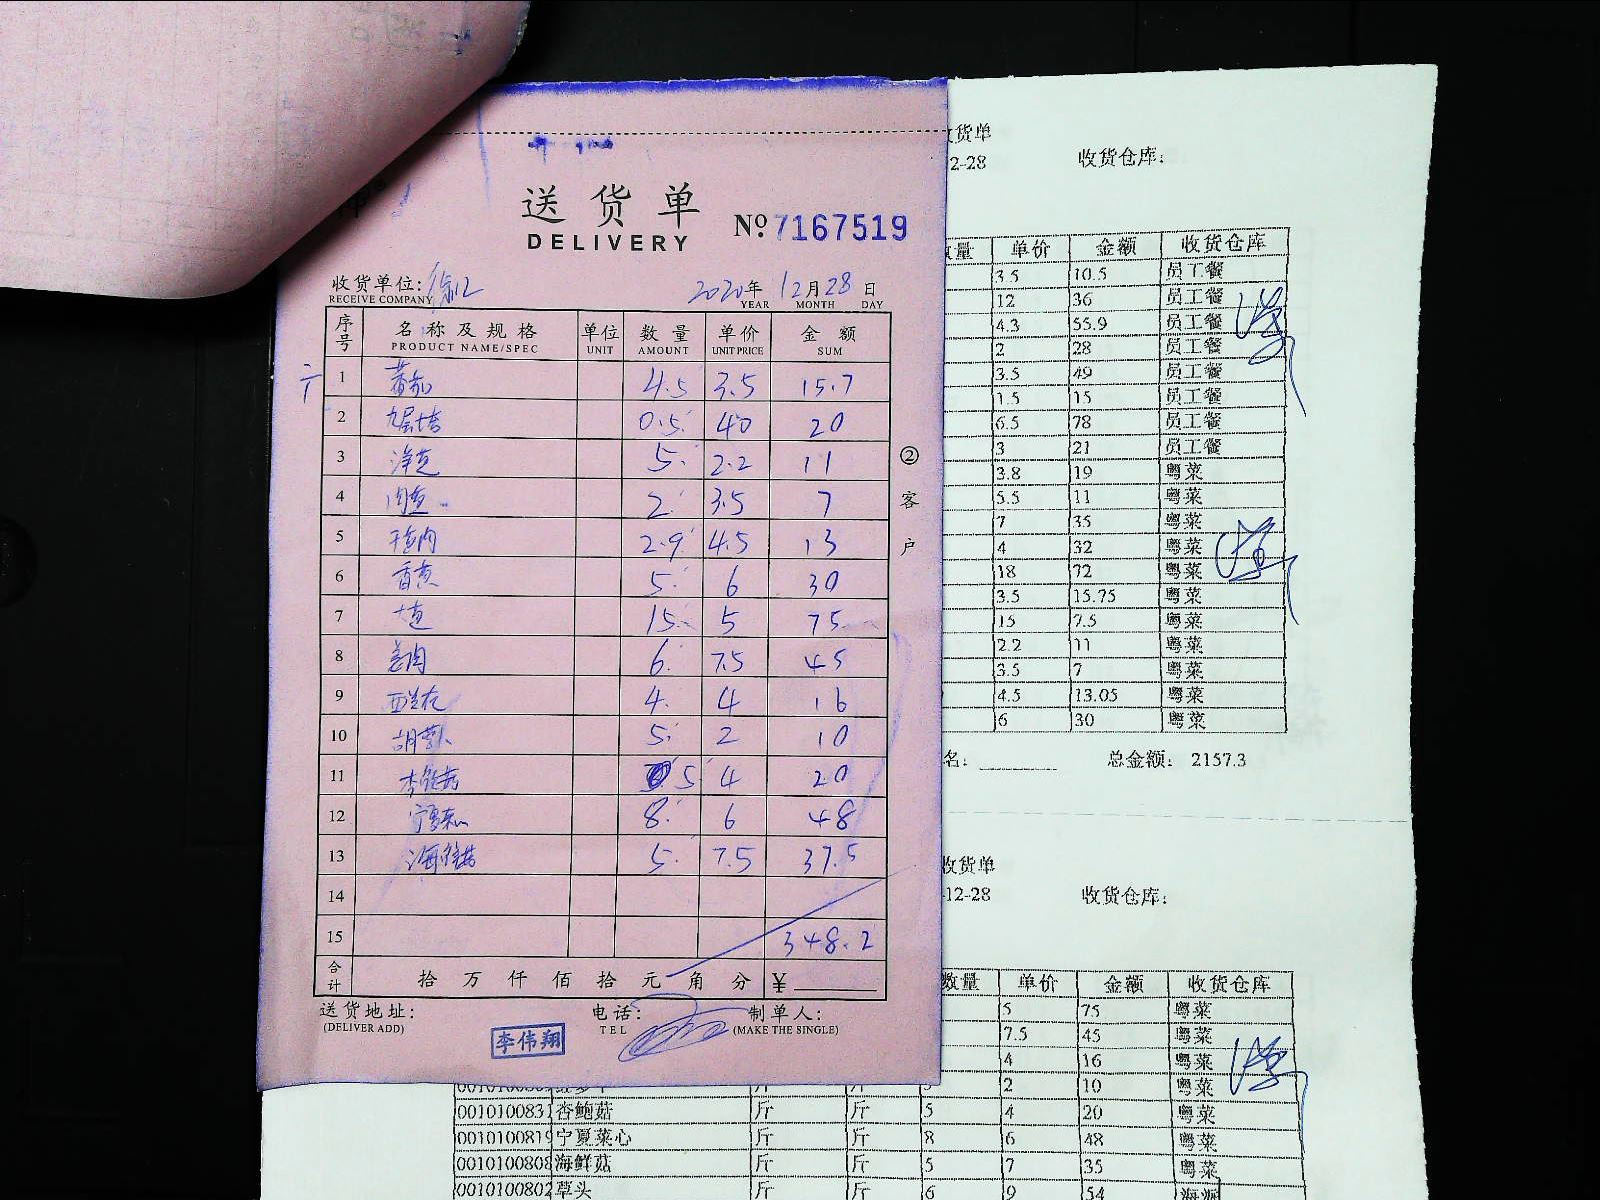 送货单
DELIVERY
№ 7167519
收货单位:徐汇
RECEIVE COMPANY
2020年 12月28日
YEAR MONTH DAY
序号 名称及规格 单位 数量 单价 金额
PRODUCT NAME/SPEC UNIT AMOUNT UNIT PRICE SUM
1 番茄 4.5 3.5 15.7
2 九层塔 0.5 40 20
3 5 2.2 11
4 2 3.5 7
5 2.9 4.5 13
6 5 6 30
7 15 5 75
8 6 7.5 45
9 西兰花 4 4 16
10 胡萝卜 5 2 10
11 杏鲍菇 5 4 20
12 宁夏菜心 8 6 48
13 海鲜菇 5 7.5 37.5
14
15 348.2
合计 拾万仟佰拾元角分 ¥
送货地址: 电话: 制单人:
(DELIVER ADD) TEL (MAKE THE SINGLE)
李伟翔
②客户
货单
2-28 收货仓库:
量 单价 金额 收货仓库
3.5 10.5 员工餐
12 36 员工餐
4.3 55.9 员工餐
2 28 员工餐
3.5 49 员工餐
1.5 15 员工餐
6.5 78 员工餐
3 21 员工餐
3.8 19 粤菜
5.5 11 粤菜
7 35 粤菜
4 32 粤菜
18 72 粤菜
3.5 15.75 粤菜
15 7.5 粤菜
2.2 11 粤菜
3.5 7 粤菜
4.5 13.05 粤菜
6 30 粤菜
名: 总金额: 2157.3
收货单
-12-28 收货仓库:
数量 单价 金额 收货仓库
5 75 粤菜
7.5 45 粤菜
4 16 粤菜
2 10 粤菜
0010100831 杏鲍菇 斤 斤 5 4 20 粤菜
0010100819 宁夏菜心 斤 斤 8 6 48 粤菜
0010100808 海鲜菇 斤 斤 5 7 35 粤菜
0010100802 草头 斤 斤 6 9 54 海派